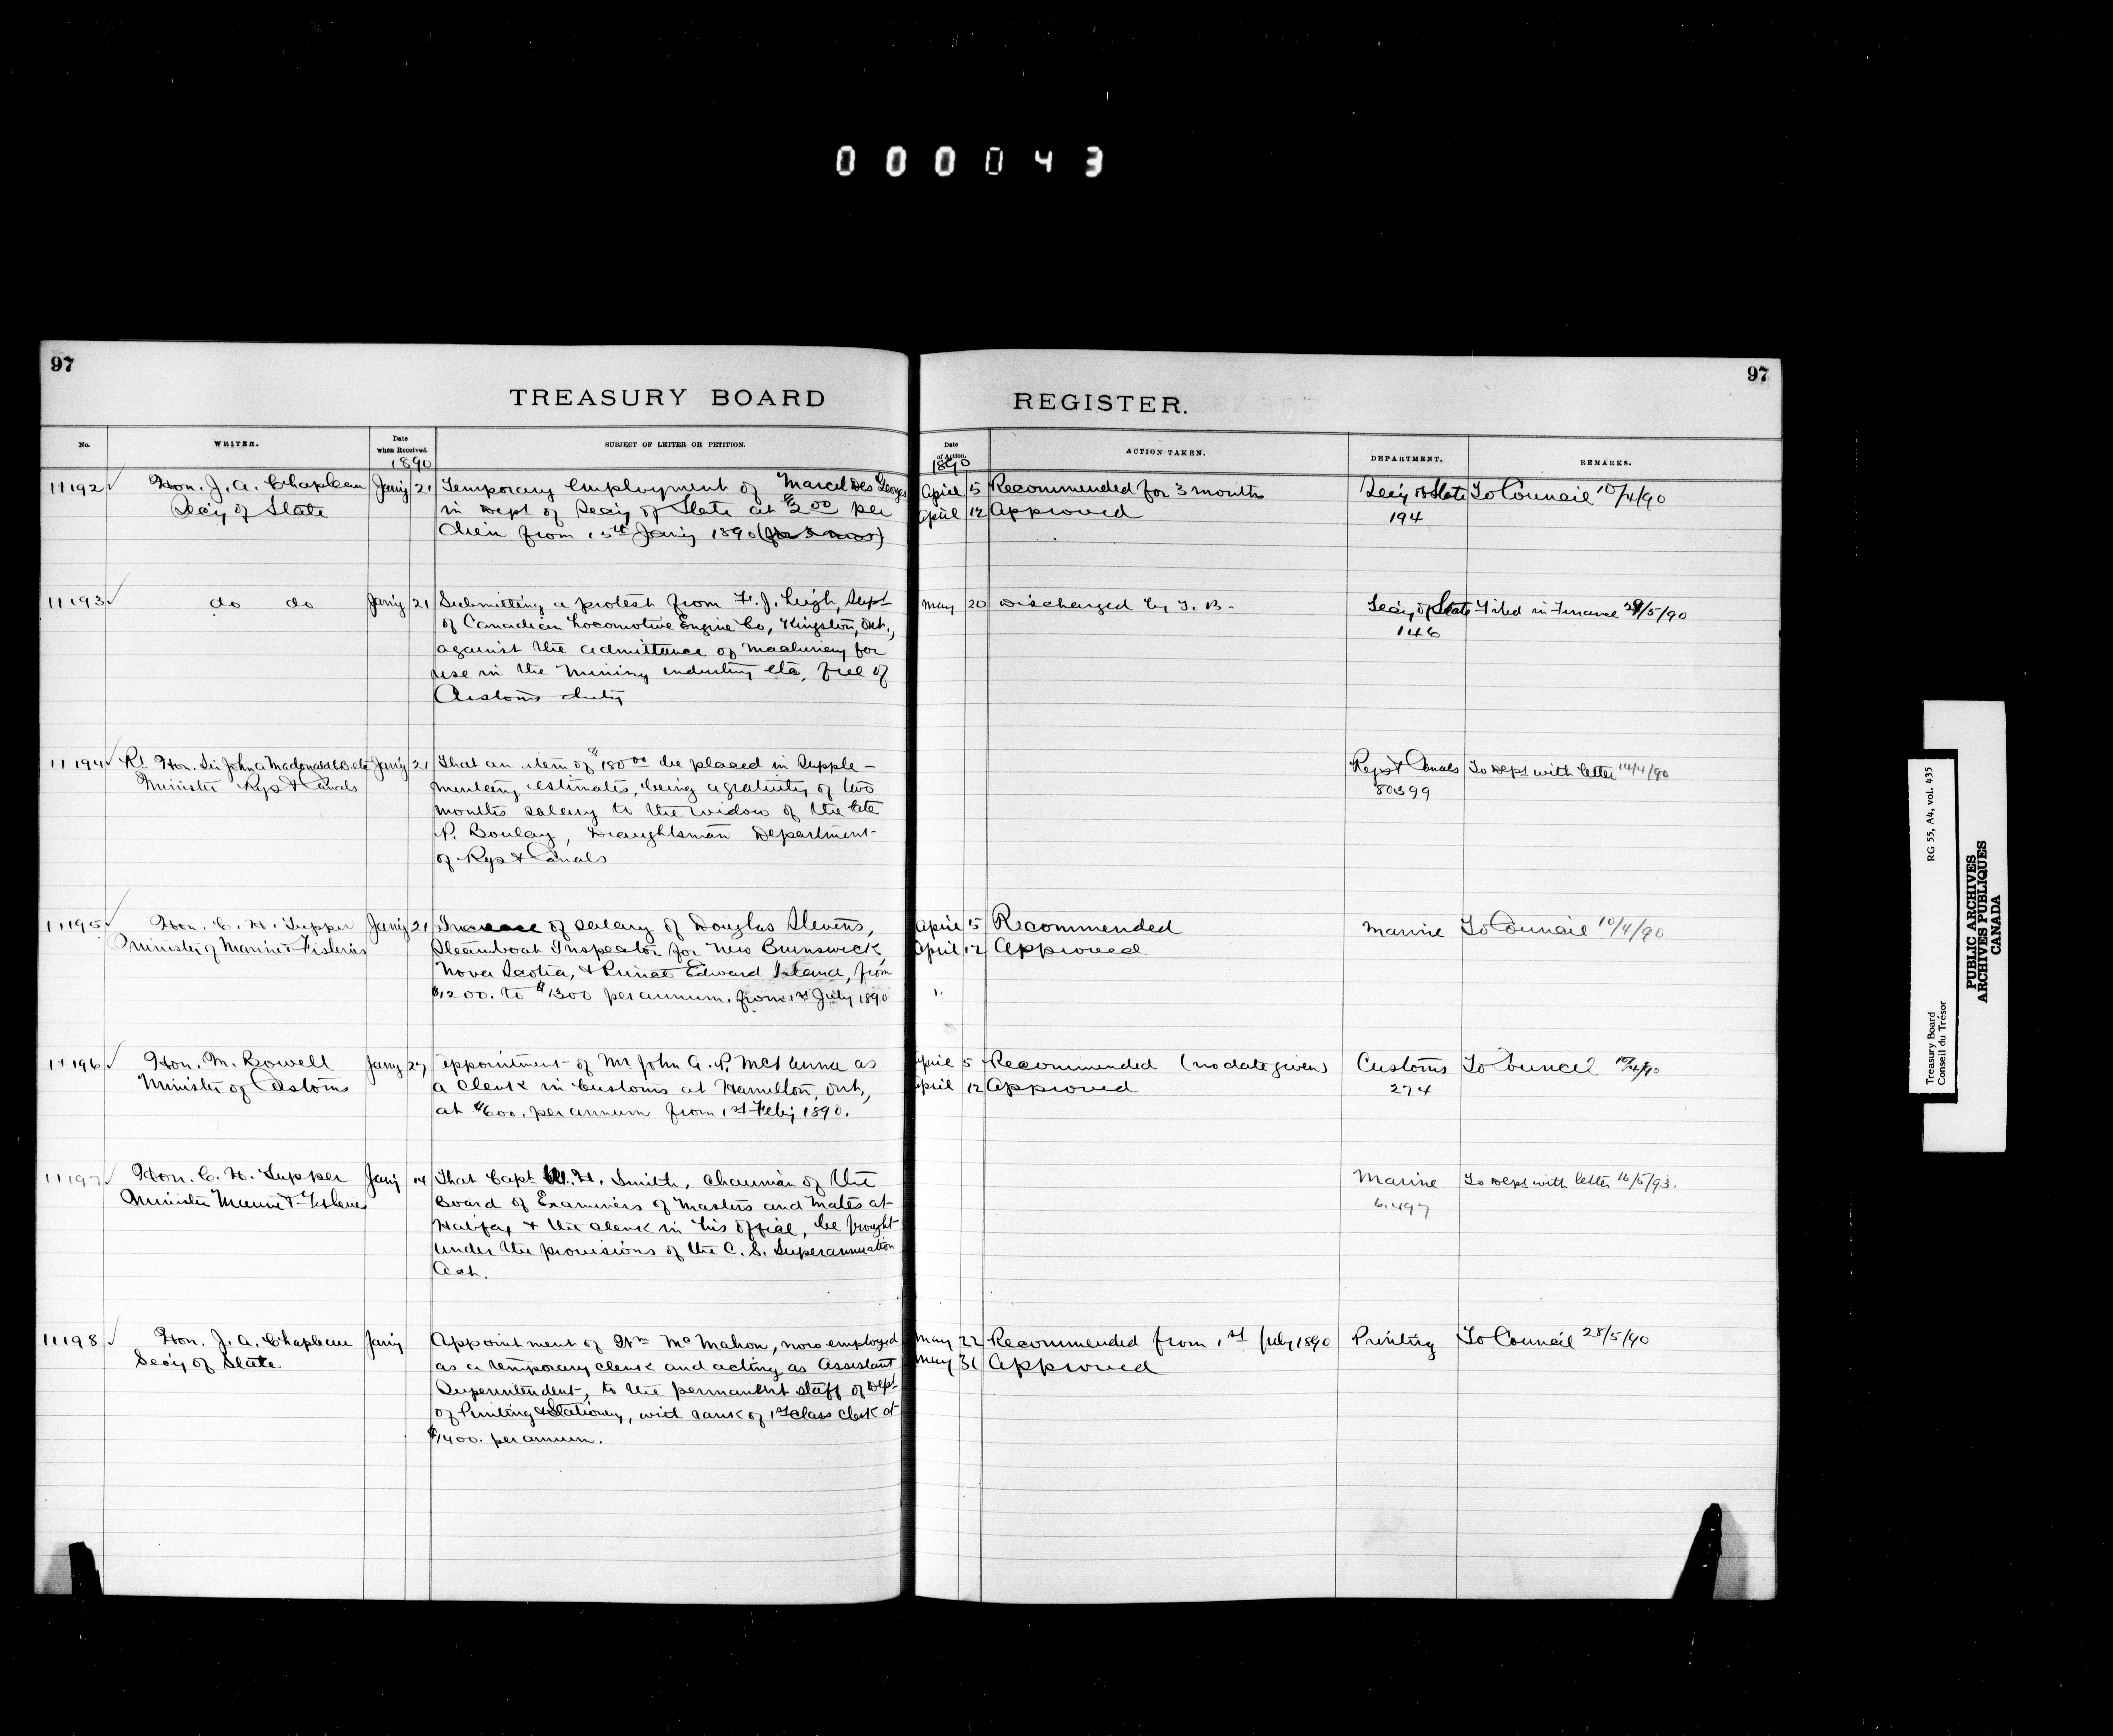 0 0 0 0 4 3
97
97
TREASURY BOARD REGISTER.
No.
WRITER.
Date when Received.
1890
SUBJECT OF LETTER OR PETITION.
Date of Action.
1890
ACTION TAKEN.
DEPARTMENT.
REMARKS.
11192 Hon. J. A. Chapleau Jan'y 21 Temporary employment of Marcel Des Georges April 5 Recommended for 3 months Sec'y of State To Council 10/4/90
Sec'y of State in Dept of Sec'y of State at $2.00 per April 12 Approved 194
diem from 15th Jan'y 1890 (for 3 mos)
11193 do do Jan'y 21 Submitting a protest from F. J. Leigh, Supt May 20 Discharged by T. B. Sec'y of State Filed in Finance 29/5/90
of Canadian Locomotive Engine Co, Kingston, Ont., 146
against the admittance of machinery for
use in the mining industry etc, free of
Customs duty
11194 Rt Hon. Sir John A Macdonald Jan'y 21 That an item of $180.00 be placed in Supple- Rys & Canals To Dept with letter 14/4/90
Minister Rys & Canals mentary estimates, being a gratuity of two 80399
months salary to the widow of the late
P. Boulay, Draughtsman Department
of Rys & Canals
11195 Hon. C. H. Tupper Jan'y 21 Increase of salary of Douglas Stevens, April 5 Recommended Marine To Council 10/4/90
Minister of Marine & Fisheries Steamboat Inspector for New Brunswick, April 12 Approved
Nova Scotia, & Prince Edward Island, from
$1200. to $1300 per annum. from 1st July 1890
11196 Hon. M. Bowell Jan'y 27 appointment of Mr John A. P. McKenna as April 5 Recommended (no date given) Customs To Council 10/4/90
Minister of Customs a Clerk in Customs at Hamilton, Ont., April 12 Approved 274
at $600. per annum from 1st Feb'y 1890.
11197 Hon. C. H. Tupper Jan'y 14 That Capt W. H. Smith, chairman of the Marine To Dept with letter 16/5/93.
Minister Marine & Fisheries Board of Examiners of Masters and Mates at 6.497
Halifax, & the clerk in his office, be brought
under the provisions of the C. S. Superannuation
Act.
11198 Hon. J. A. Chapleau Jan'y Appointment of Wm McMahon, now employed May 22 Recommended from 1st July 1890 Printing To Council 28/5/90
Sec'y of State as a temporary clerk and acting as Assistant May 31 Approved
Superintendent, to the permanent staff of Dept
of Printing & Stationery, with rank of 1st Class Clerk at
$1400. per annum.
Treasury Board
Conseil du Trésor
RG 55, A4, vol. 435
PUBLIC ARCHIVES
ARCHIVES PUBLIQUES
CANADA